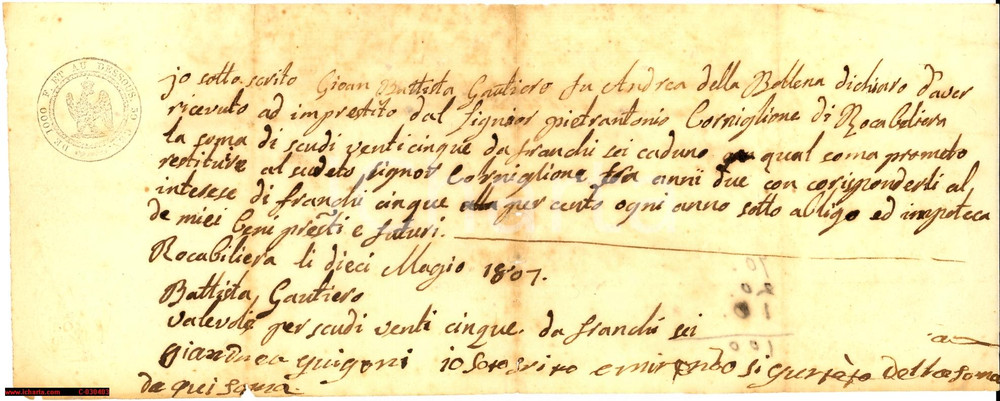 DE 1000 F. ET AU DESSOUS. 35 CEN.
jo sotto scrito Gioan Battista Gautiero fu Andrea della Bollena dichiaro d'aver
ricevuto ad imprestito dal signor pietrantonio Corniglione di Rocabiliera
la soma di scudi venti cinque da franchi sei caduno qual soma prometo
restituire al sudeto signor Corniglione fra annii due con corisponderli al
interese di franchi cinque per cento ogni anno sotto abligo ed impoteca
de miei beni presti e futuri.
Rocabiliera li dieci Magio 1807.
Battista Gautiero
valevole per scudi venti cinque da franchi sei
io
de qui sovra
www.icharta.com C-030403